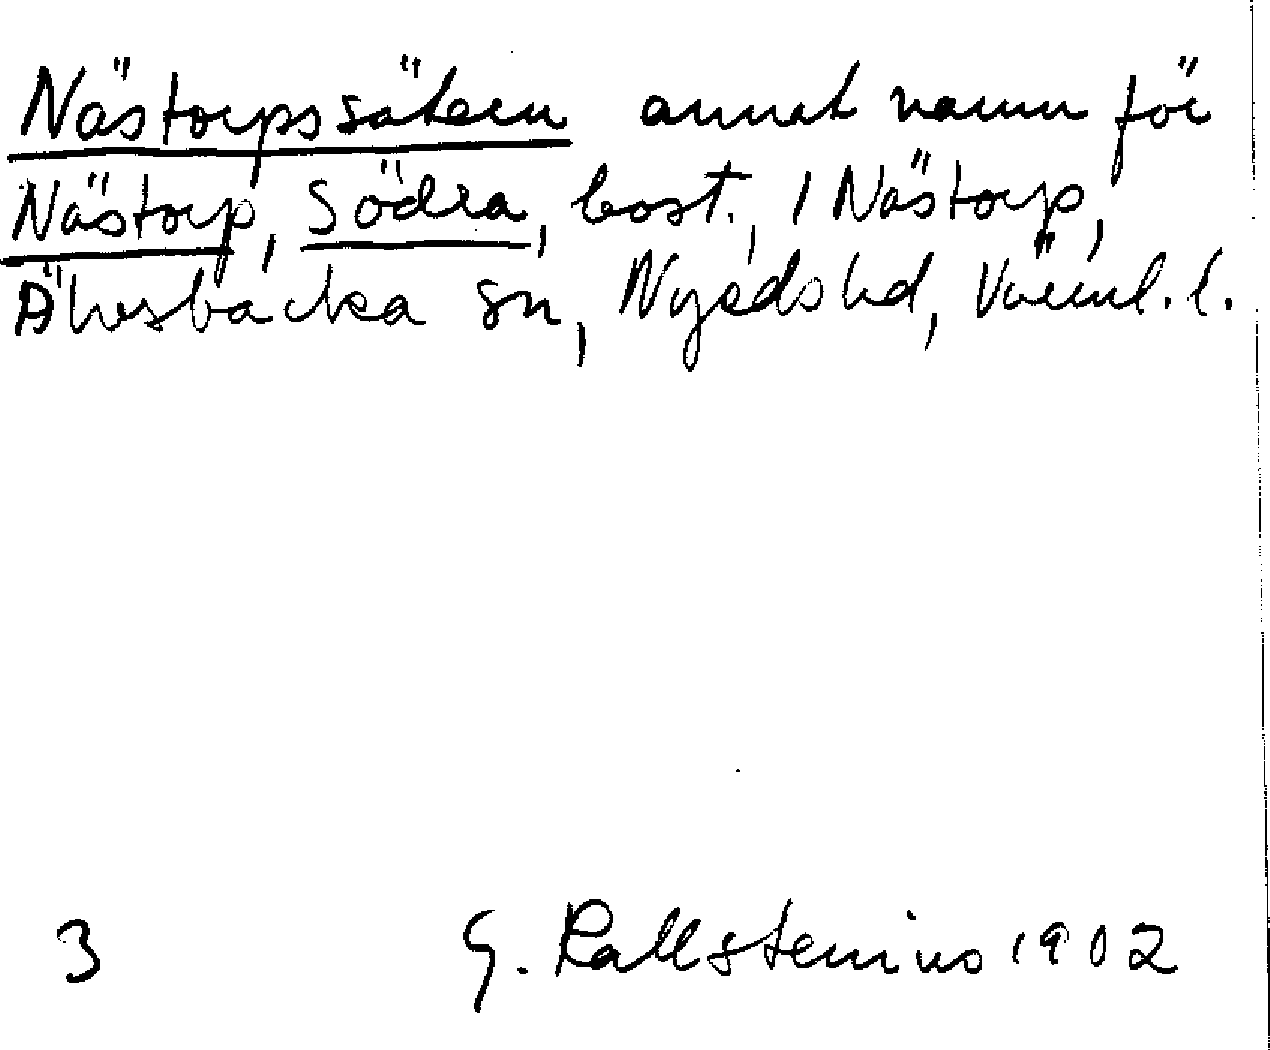 Nästorpssätern annat namn för
Nästorp, Södra, bost., i Nästorp,
Älvsbacka sn, Nyedshd, Värml. l.
3 G. Kallstenius 1902